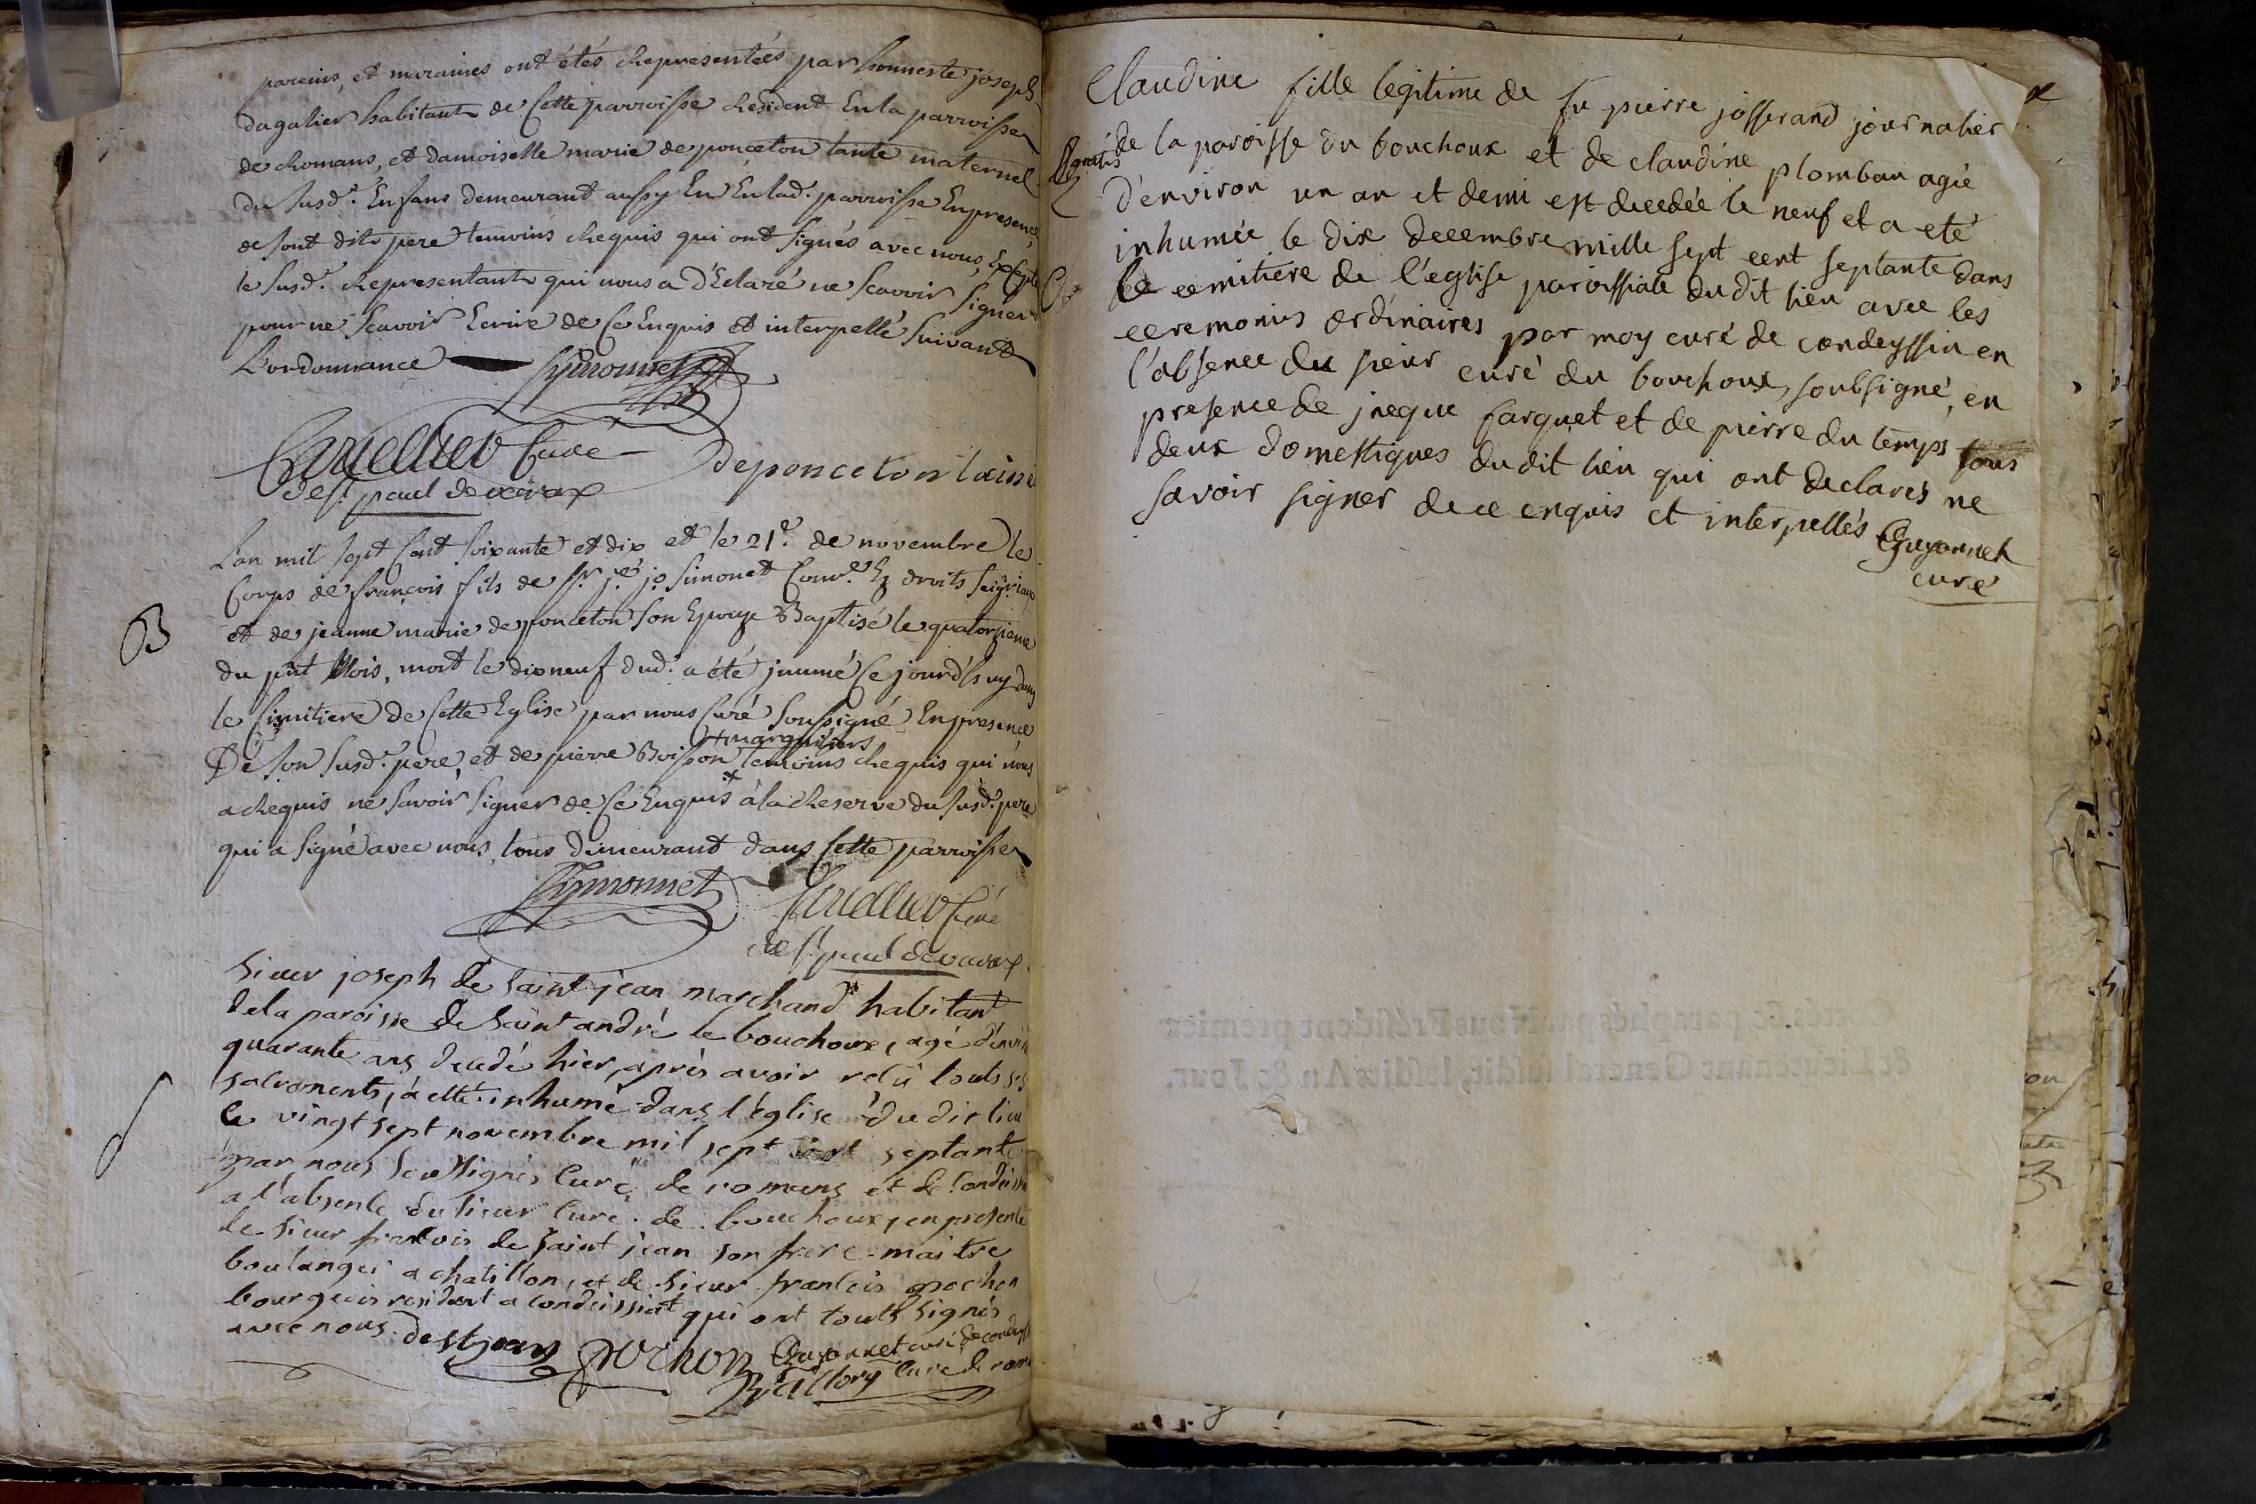 pareins, et maraines ont étés Representées par honneste joseph
dagalier habitant de Cette parroisse Resident En la parroisse
de Romans, et damoiselle marie de ponceton tante maternel
du susd.t Enfans demeurant aussy En En lad. parroisse En presence
de sont dit pere temoins Requis qui ont signés avec nous, Excepté
le susd.t Representant qui nous a D'Eclaré ne scavoir signer
pour ne scavoir Ecrire de Ce Enquis et interpellé suivant
L'ordonnance Symonnet
Curé deponceton lainé
de st paul de varax
L'an mil sept Cent soixante et dix et le 21e. de novembre le
Corps de françois fils de sr. jo simonet Com.re Ez droits seig.riaux
et de jeanne marie de ponceton son Epouze Baptisé le quatorzieme
du pnt Mois, mort le dix neuf dud. a été jnumé Ce jourd'huy dans
le Cimitiere de Cette Eglise par nous Curé soussigné En presence
+ marguiliers
De son susd.t pere, et de pierre Boisson temoins Requis qui nous
a Requis ne savoir signer de Ce Enquis + à la Reserve du susd.t pere
qui a signé avec nous, tous Demeurant dans Cette parroisse
B
Symonnet Curé
de st paul de varax
sieur joseph de saint jean marchand habitant
de la paroisse de saint andré le bouchoux, agé d'environ
quarante ans decedé hier, après avoir reçu touts ses
sacrements, a etté inhumé dans l'église du dit lieu
le vingt sept novembre mil sept cent septante
par nous soussignés Curé de romans et de Condeissiat
a l'absence du sieur Curé de bouchoux, en presence
de sieur francois de saint jean son frere maitre
boulanger a chatillon, et de sieur francois pochon
bourgeois resident a condeissiat qui ont touts signés
avec nous. De st jean pochon Guyonnet curé de condeyss
Curé de roman
Claudine fille legitime de fu pierre josserand journalier
gratis
de la paroisse du bouchoux et de claudine plomban agée
d'environ un an et demi est decedée le neuf et a eté
inhumée le dix decembre mille sept cent septante dans
le cemitiere de l'eglise paroissiale du dit lieu avec les
ceremonies ordinaires par moy curé de condeyssia en
l'absence du sieur curé du bouchoux soubsigné, en
presence de jacque farguet et de pierre du temps tous
deux domestiques du dit lieu qui ont declarés ne
savoir signer de ce enquis et interpellés Guyonnet
curé
& paraphés par Nous Président premier
& Lieutenant General susdit, lesdits An & Jour.